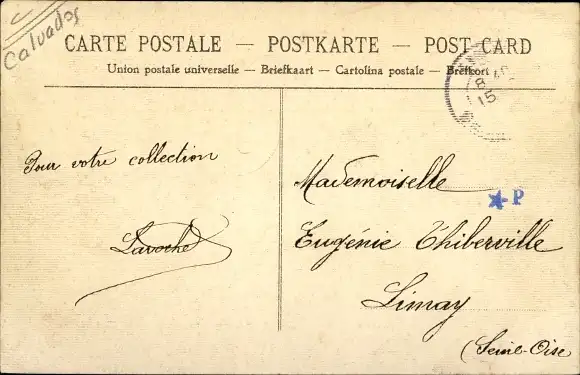 Calvados
CARTE POSTALE — POSTKARTE — POST CARD
Union postale universelle — Briefkaart — Cartolina postale — Brefkort
Pour votre collection
Mademoiselle
P
Eugénie Thiberville
Limay
(Seine-Oise